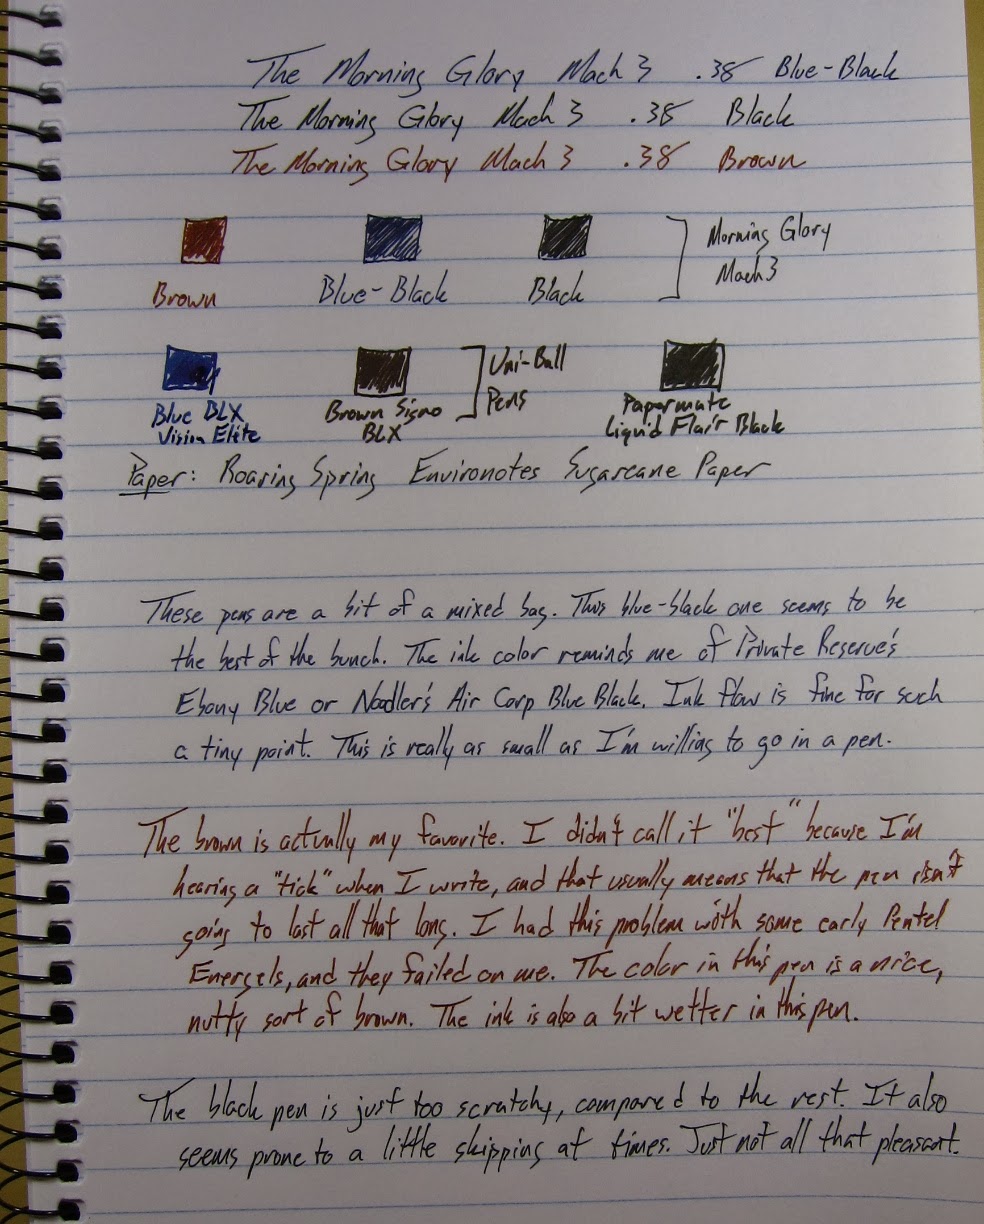 The Morning Glory Mach 3 .38 Blue-Black
The Morning Glory Mach 3 .38 Black
The Morning Glory Mach 3 .38 Brown
Morning Glory
Mach 3
Brown Blue-Black Black
Uni-Ball
Pens
Blue BLX Brown Signo Papermate
Vision Elite BLX Liquid Flair Black
Paper: Roaring Spring Environotes Sugarcane Paper
These pens are a bit of a mixed bag. This blue-black one seems to be
the best of the bunch. The ink color reminds me of Private Reserve's
Ebony Blue or Noodler's Air Corp Blue Black. Ink flow is fine for such
a tiny point. This is really as small as I'm willing to go in a pen.
The brown is actually my favorite. I didn't call it "best" because I'm
hearing a "tick" when I write, and that usually means that the pen isn't
going to last all that long. I had this problem with some early Pentel
Energels, and they failed on me. The color in this pen is a nice,
nutty sort of brown. The ink is also a bit wetter in this pen.
The black pen is just too scratchy, compared to the rest. It also
seems prone to a little skipping at times. Just not all that pleasant.